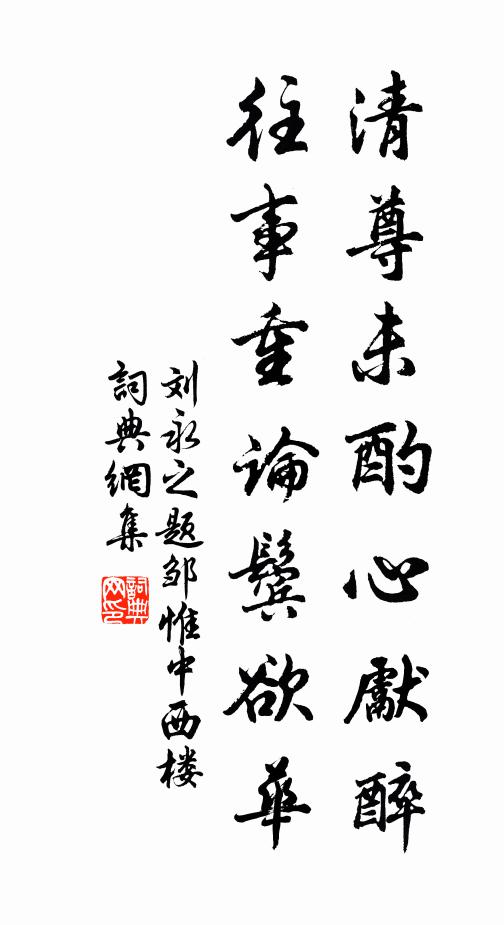 清尊未酌心獻醉
往事重論鬓欲華
刘永之题邹惟中西楼
詞典網集
詞典
网印